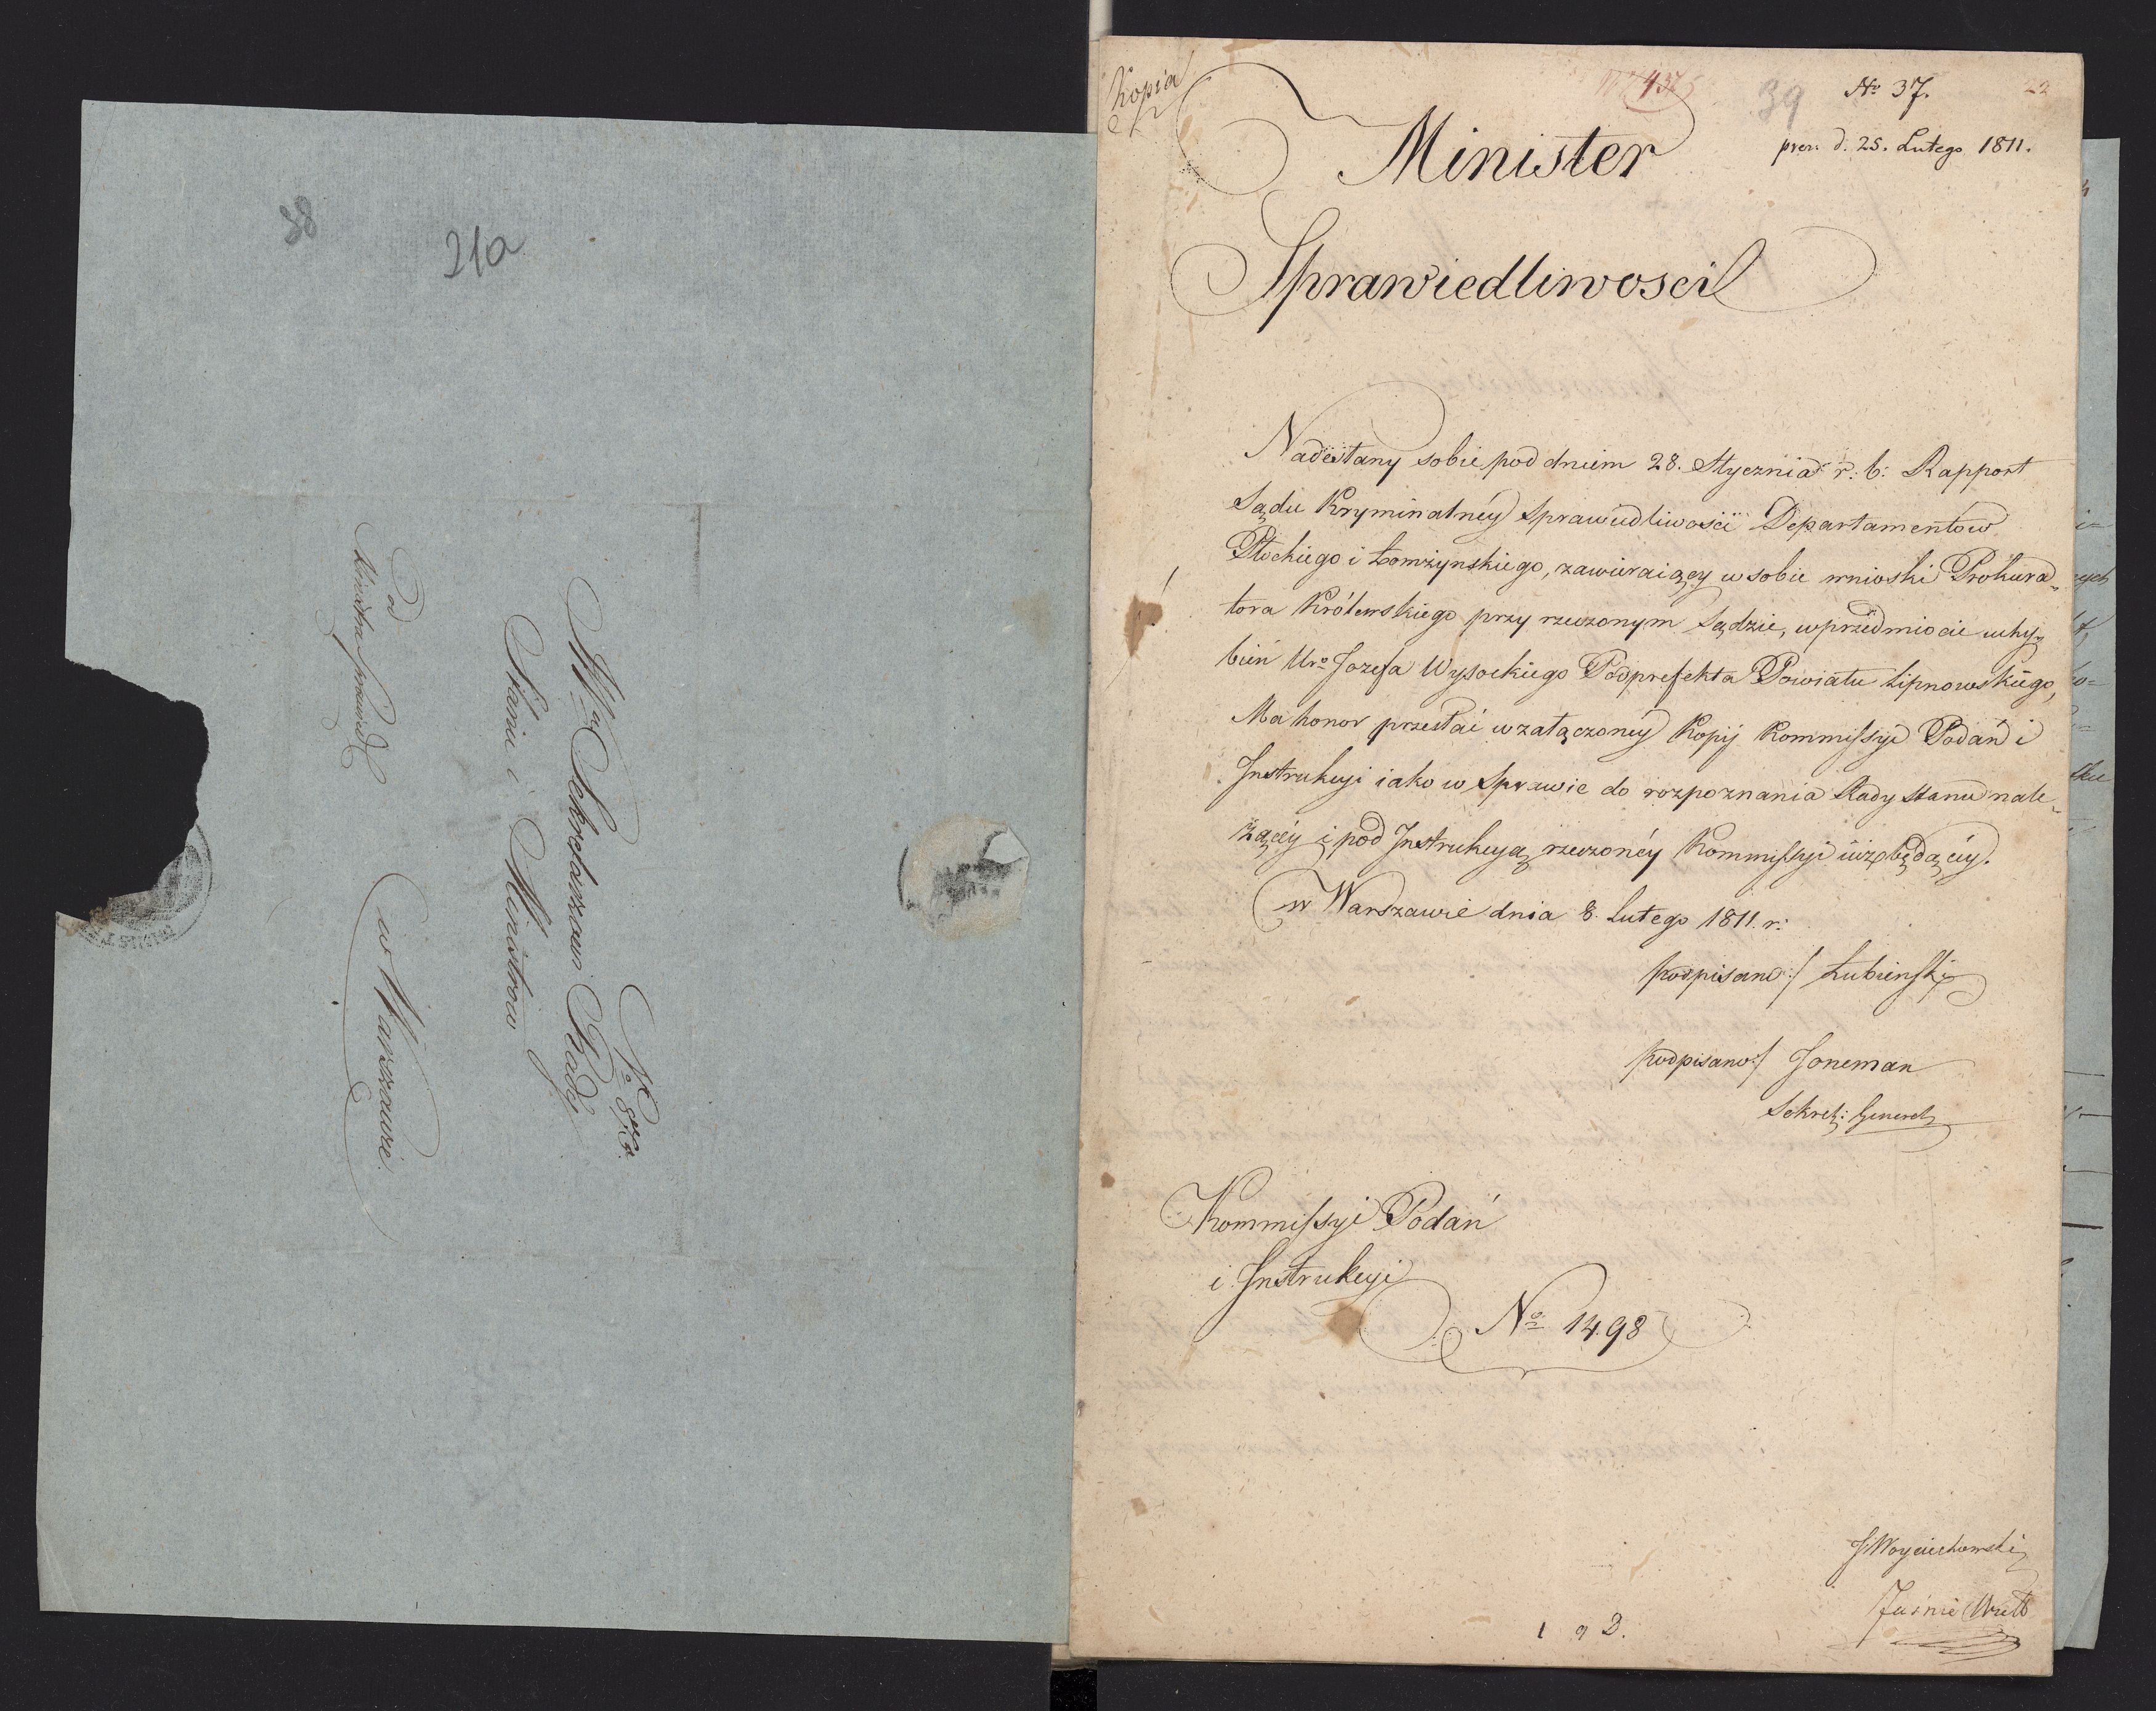 38
21a
No 872.
Wu Sekretarzowi Rady
Stanu i Ministrow
w Warszawie.
Od
Ministra Sprawied
Kopia
39
No 37.
22
prez. d. 25. Lutego 1811.
Minister
Sprawiedliwosci
Nadesłany sobie pod dniem 28. Stycznia r: b: Rapport
Sądu Kryminalnéy Sprawiedliwości Departamentow
Płockiego i Łomżynskiego, zawieraiący w sobie wnioski Prokura„
tora Królewskiego przy rzeczonym Sądzie, w przedmiocie uchy„
bień Uro Jozefa Wysockiego Podprefekta Powiatu Lipnowskiego,
Ma honor przesłać w załączonéy Kopij Kommissyi Podań i
Instrukcyi iako w Sprawie do rozpoznania Rady Stanu nale„
żącéy i pod Instrukcyą rzeczonéy Kommissyi iuż będącéy.
w Warszawie dnia 8. Lutego 1811. r:
podpisano:/ Łubieński
podpisano:/ Joneman
Sekret: General
Kommissyi Podań
i Instrukcyi
No 1498
J Woyciechowski
Jaśnie Wiel